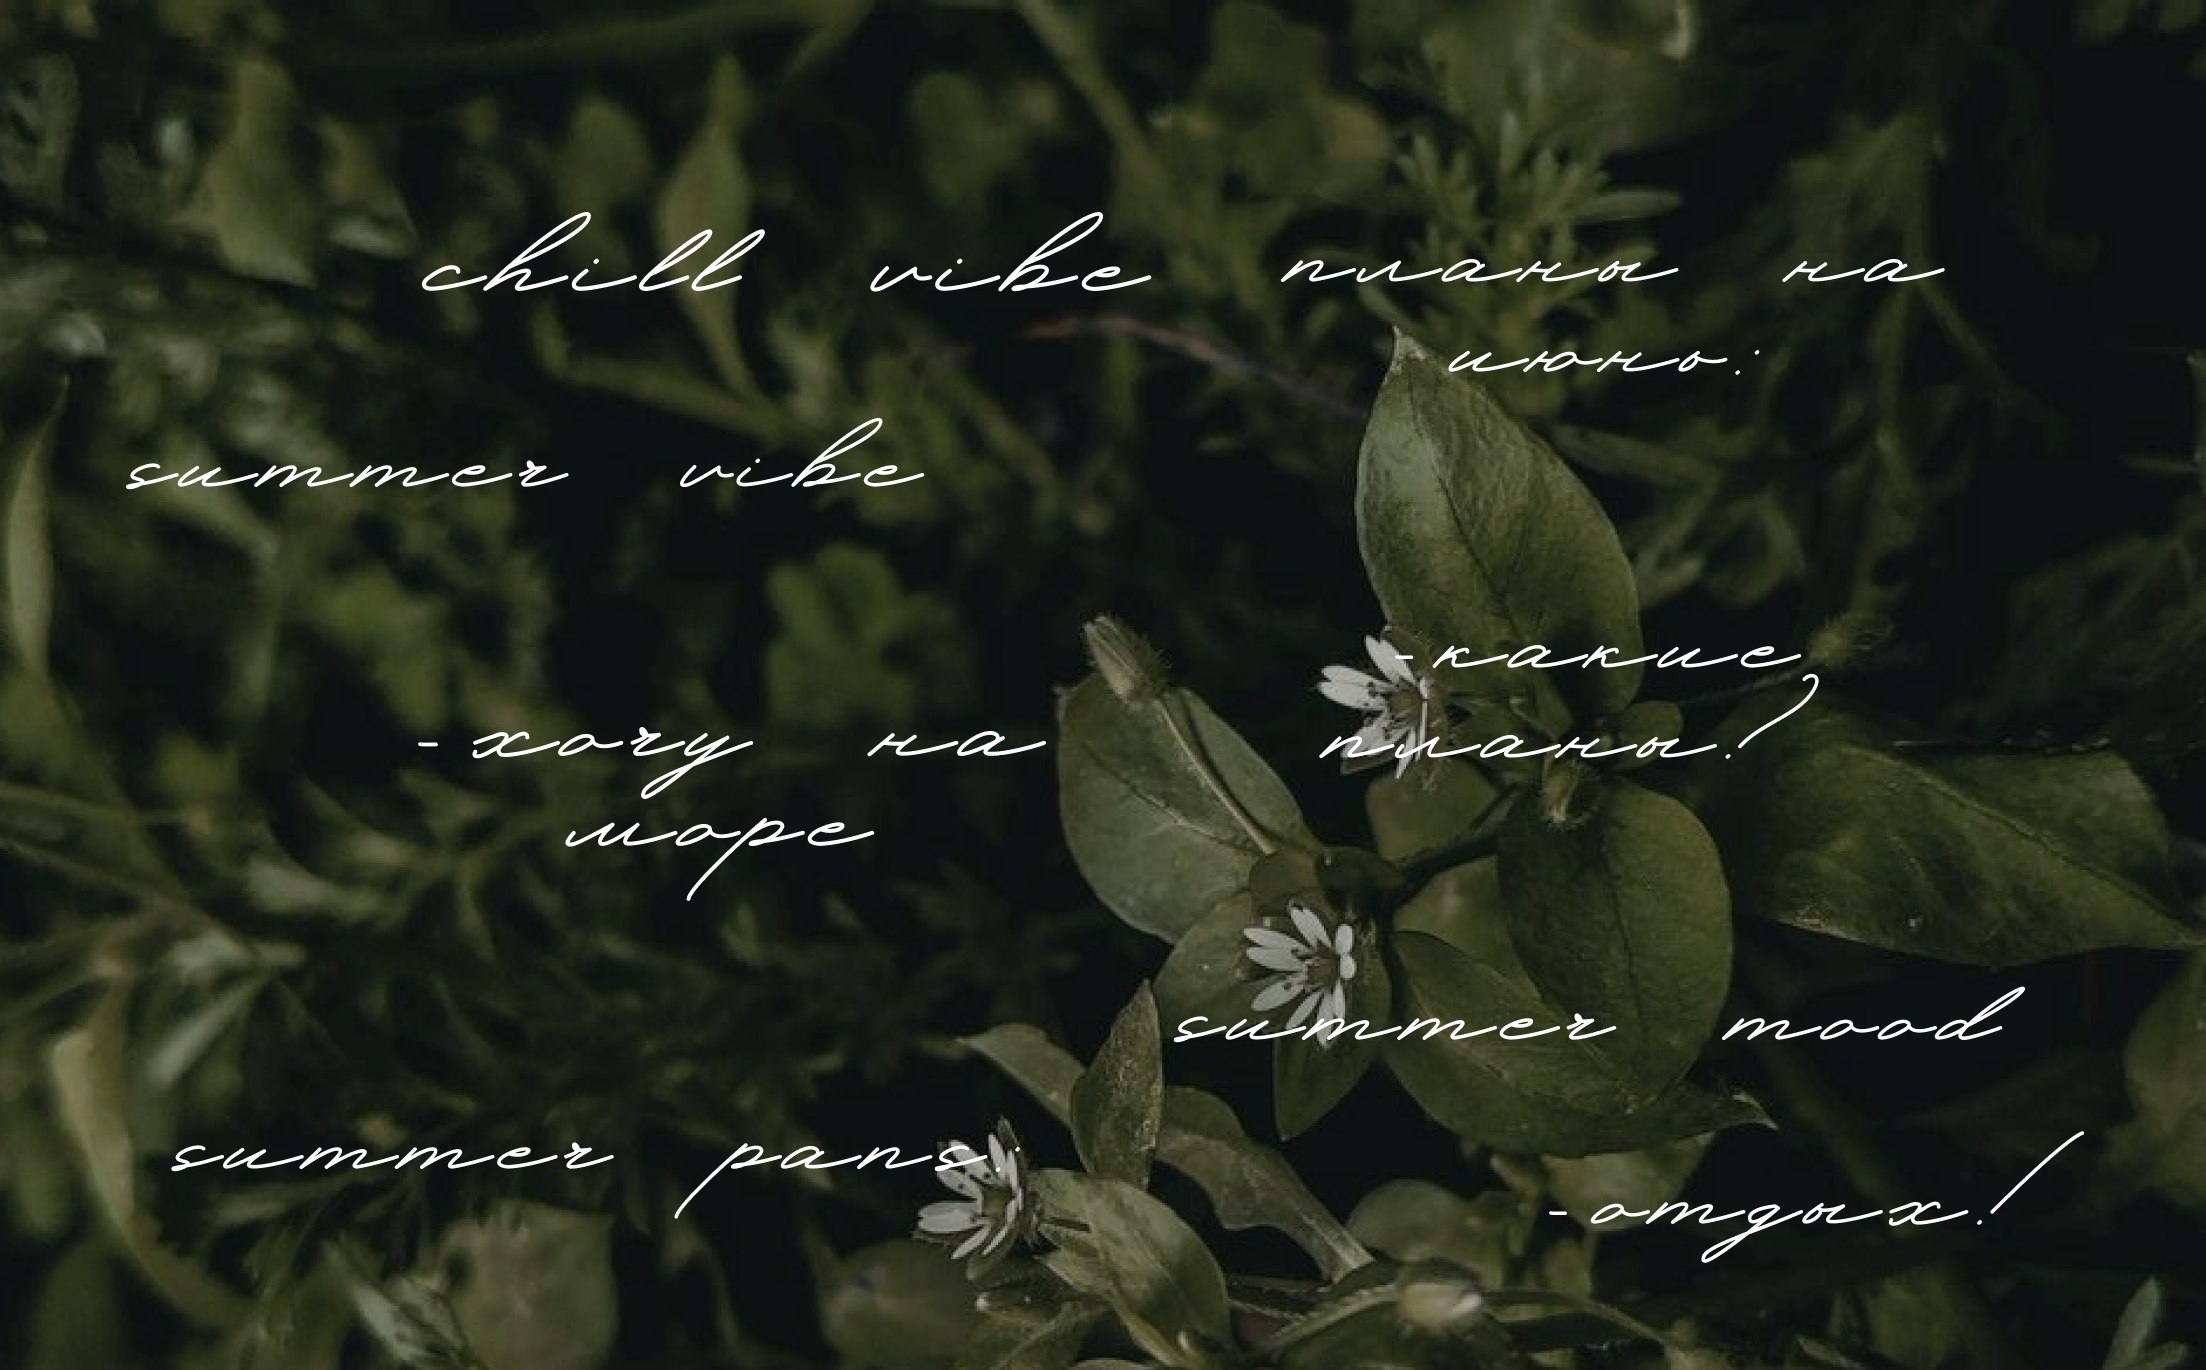 chill vibe
планы на
июнь:
summer vibe
-какие
планы?
-хочу на
море
summer mood
summer pans:
-отдых!